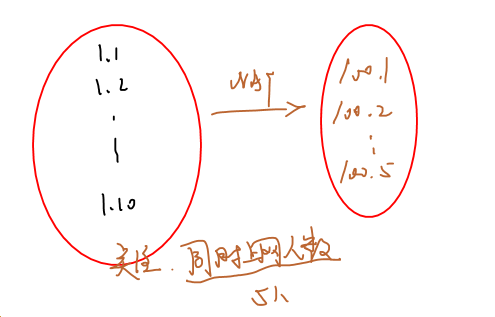 1.1
1.2
1.10
NAT
100.1
100.2
100.5
关注.同时上网人数
5个